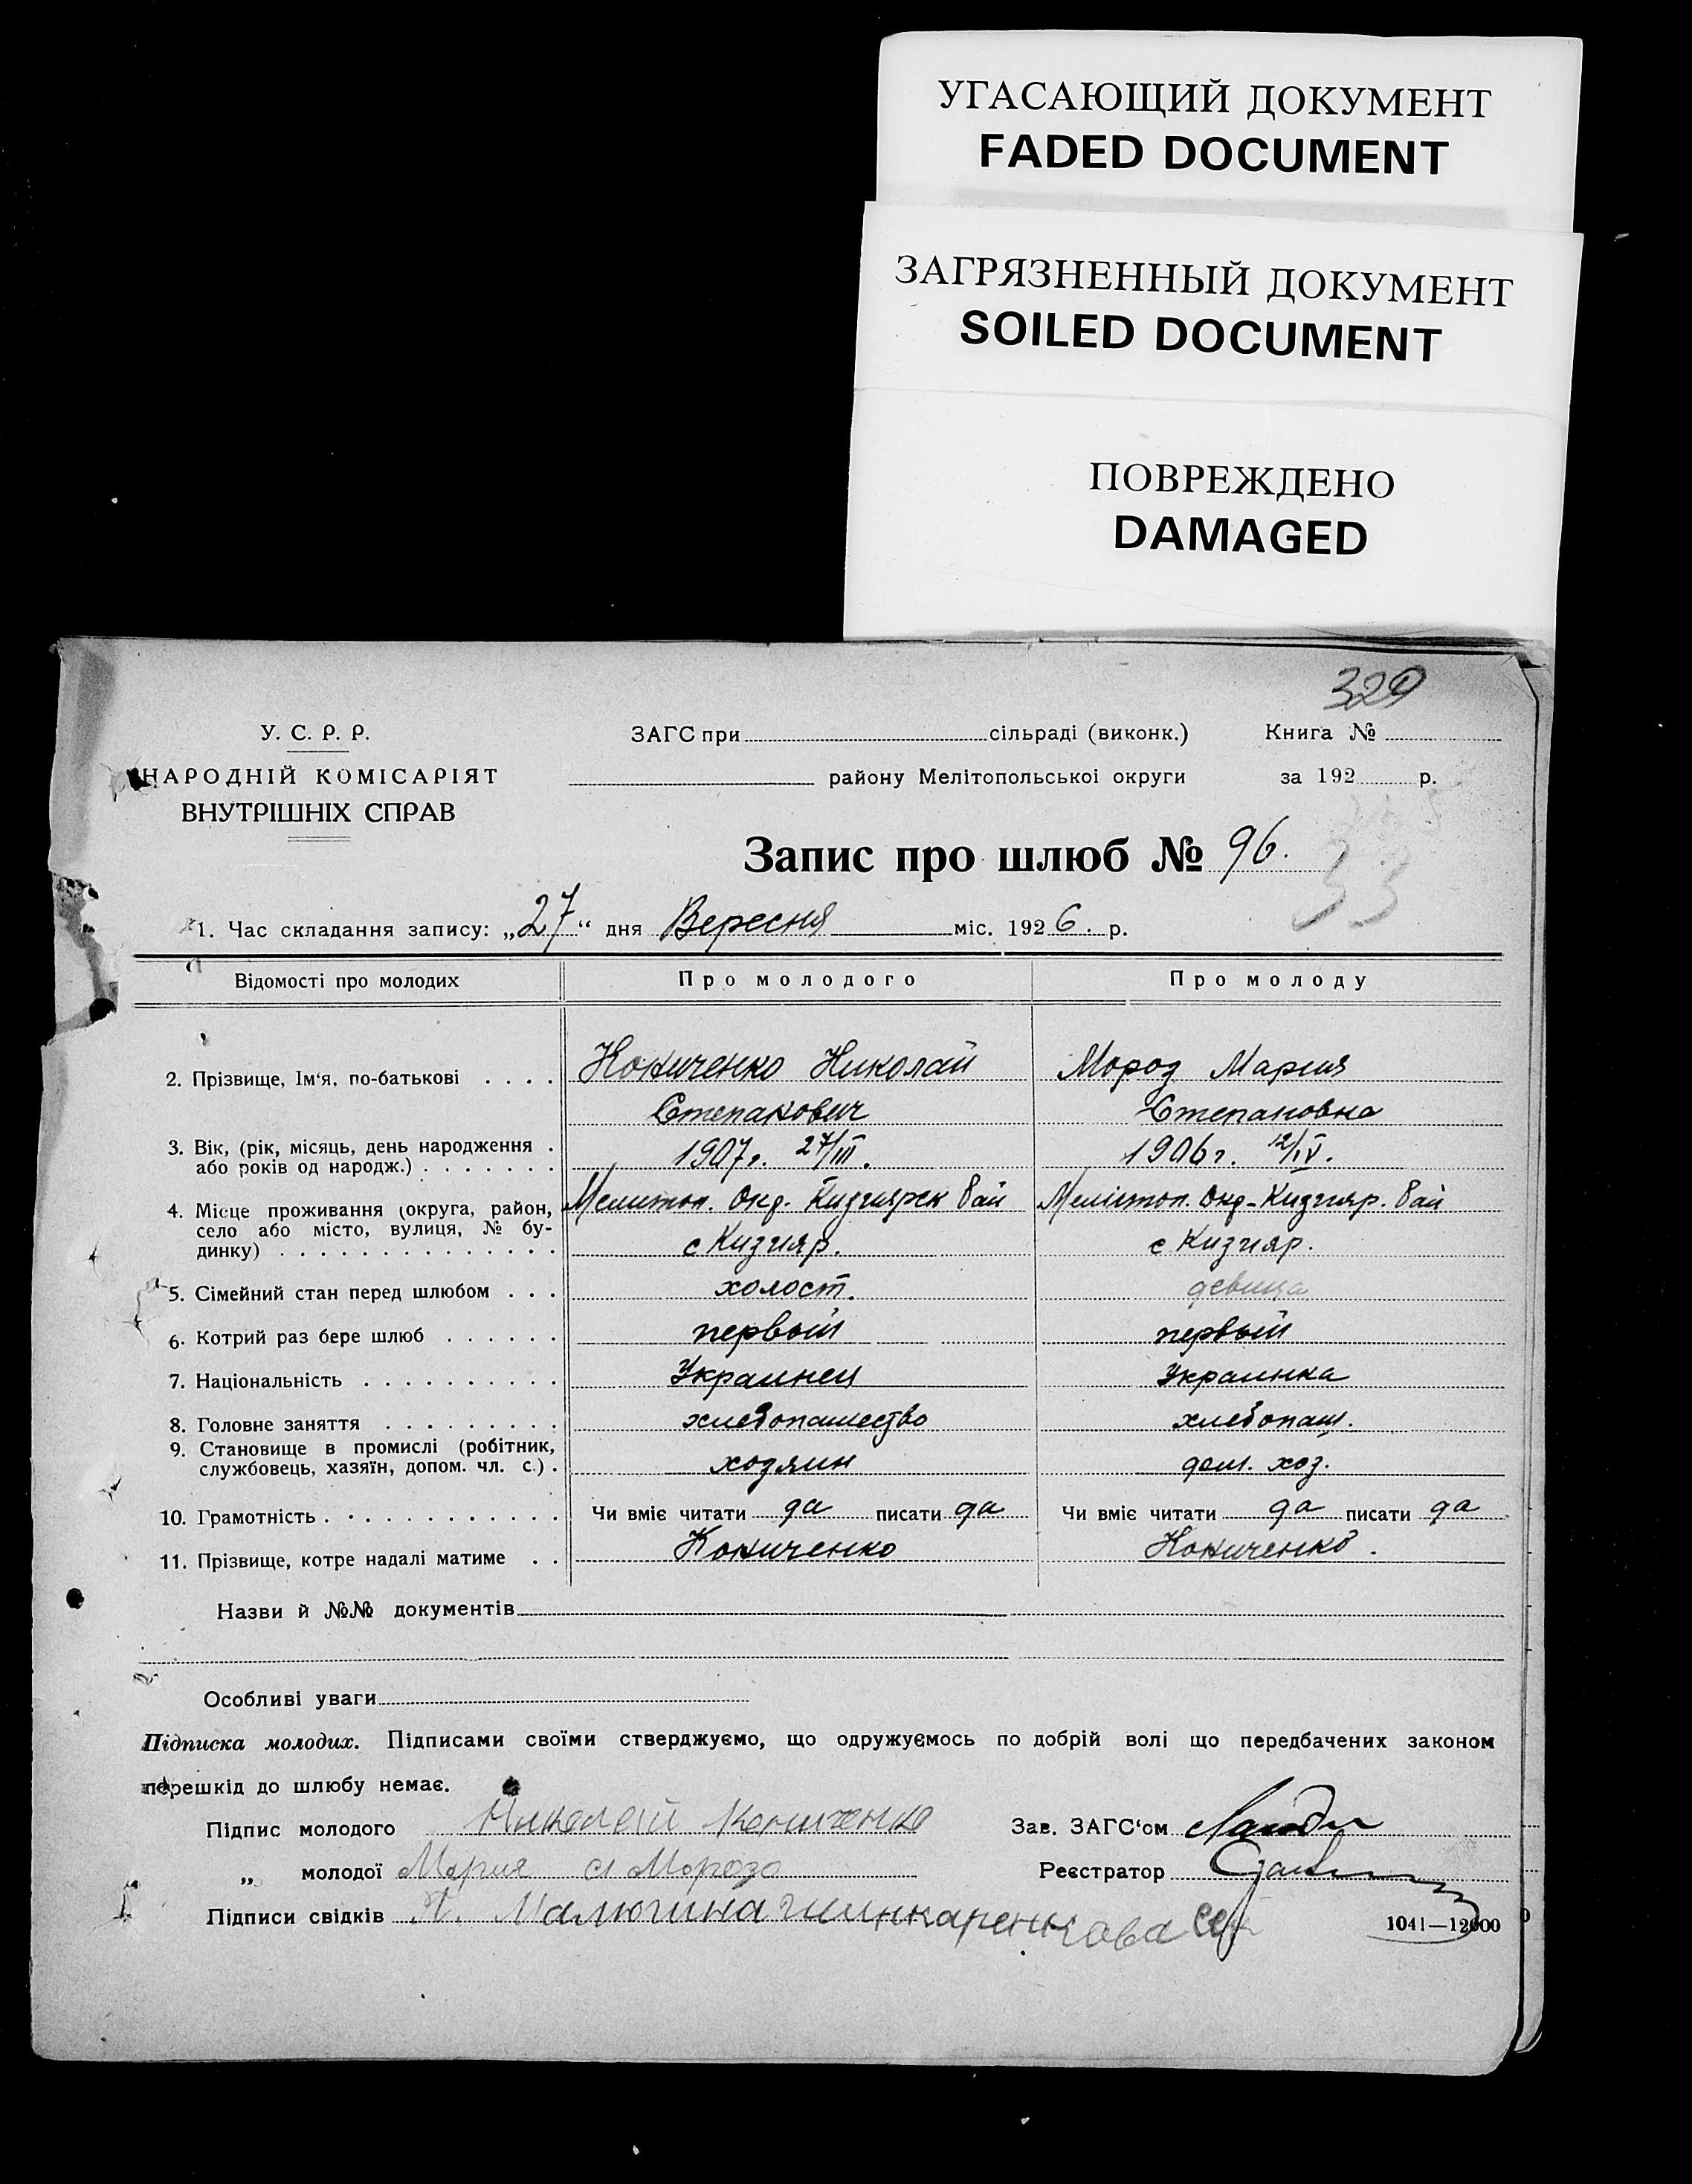 УГАСАЮЩИЙ ДОКУМЕНТ
FADED DOCUMENT
ЗАГРЯЗНЕННЫЙ ДОКУМЕНТ
SOILED DOCUMENT
ПОВРЕЖДЕНО
DAMAGED
329
У. С. Р. Р.
НАРОДНІЙ КОМІСАРІЯТ
ВНУТРІШНІХ СПРАВ
ЗАГС при сільраді (виконк.)
району Мелітопольської округи
Книга №
за 192 р.
Запис про шлюб № 96.
33
1. Час складання запису: „27“ дня Вересня міс. 1926. р.
Відомості про молодих Про молодого Про молоду
2. Прізвище, Ім‘я, по-батькові . . . . Кониченко Николай Мороз Мария
Степанович Степановна
3. Вік, (рік, місяць, день народження . 1907г. 27/III. 1906г. 12/IV.
або років од народж.) . . . . . . .
4. Місце проживання (округа, район, Мелитоп. Окр. Кизиярск Рай Мелітоп. Окр-Кизияр. Рай
село або місто, вулиця, № бу-
динку) . . . . . . . . . . . . . . с Кизияр. с Кизияр.
5. Сімейний стан перед шлюбом . . . холост. девица
6. Котрий раз бере шлюб . . . . . . первый первый
7. Національність . . . . . . . . . . Украинец Украинка
8. Головне заняття . . . . . . . . . хлебопашество хлебопаш.
9. Становище в промислі (робітник,
службовець, хазяїн, допом. чл. с.) . хозяин дом. хоз.
10. Грамотність . . . . . . . . . . . . Чи вміє читати да писати да Чи вміє читати да писати да
11. Прізвище, котре надалі матиме . . Кониченко Кониченко.
Назви й №№ документів
Особливі уваги
Підписка молодих. Підписами своїми стверджуємо, що одружуємось по добрій волі що передбачених законом
перешкід до шлюбу немає.
Підпис молодого Николай Кониченко Зав. ЗАГС‘ом
„ молодої Мария Мороз Реєстратор
Підписи свідків Малюгина
1041—12000